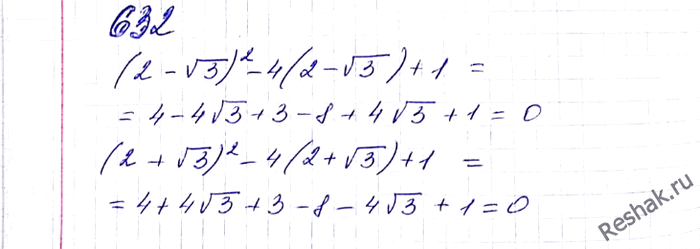 632
(2 - √3)² - 4(2 - √3) + 1 =
= 4 - 4√3 + 3 - 8 + 4√3 + 1 = 0
(2 + √3)² - 4(2 + √3) + 1 =
= 4 + 4√3 + 3 - 8 - 4√3 + 1 = 0
Reshak.ru